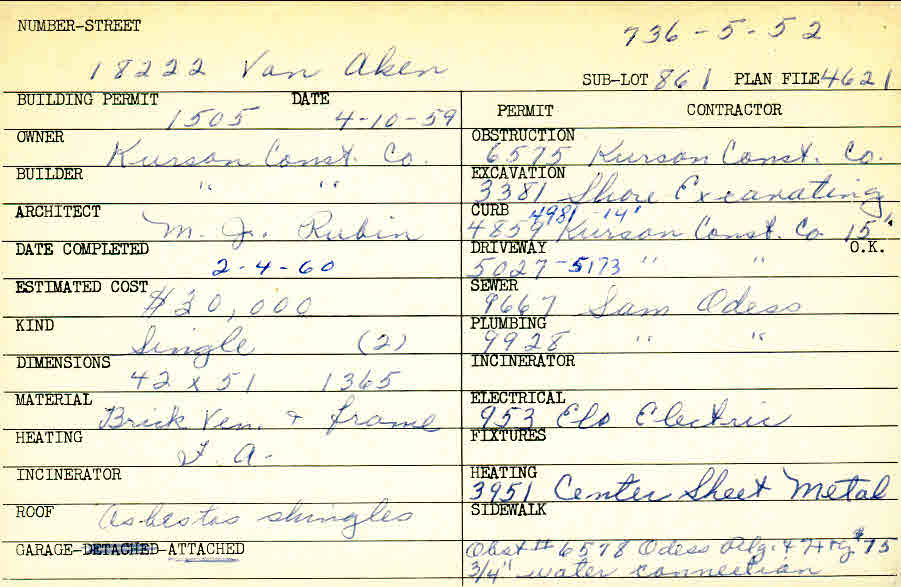 NUMBER-STREET
736-5-52
18222 Van Aken
SUB-LOT 861 PLAN FILE 4621
BUILDING PERMIT DATE
1505 4-10-59
PERMIT CONTRACTOR
OWNER
Kurson Const. Co.
OBSTRUCTION
6575 Kurson Const. Co.
BUILDER
" "
EXCAVATION
3381 Shore Excavating
ARCHITECT
M. J. Rubin
CURB 4981 - 14'
4859 Kurson Const. Co 15"
DATE COMPLETED
2-4-60
DRIVEWAY O.K.
5027-5173 " "
ESTIMATED COST
$30,000
SEWER
9667 Sam Odess
KIND
Single (2)
PLUMBING
9928 " "
DIMENSIONS
42 x 51 1365
INCINERATOR
MATERIAL
Brick Ven. + frame
ELECTRICAL
953 Elo Electric
HEATING
F. A.
FIXTURES
INCINERATOR
HEATING
3951 Center Sheet Metal
ROOF
Asbestos shingles
SIDEWALK
GARAGE-DETACHED-ATTACHED
Obst # 6578 Odess Plg. + Htg $75
3/4" water connection